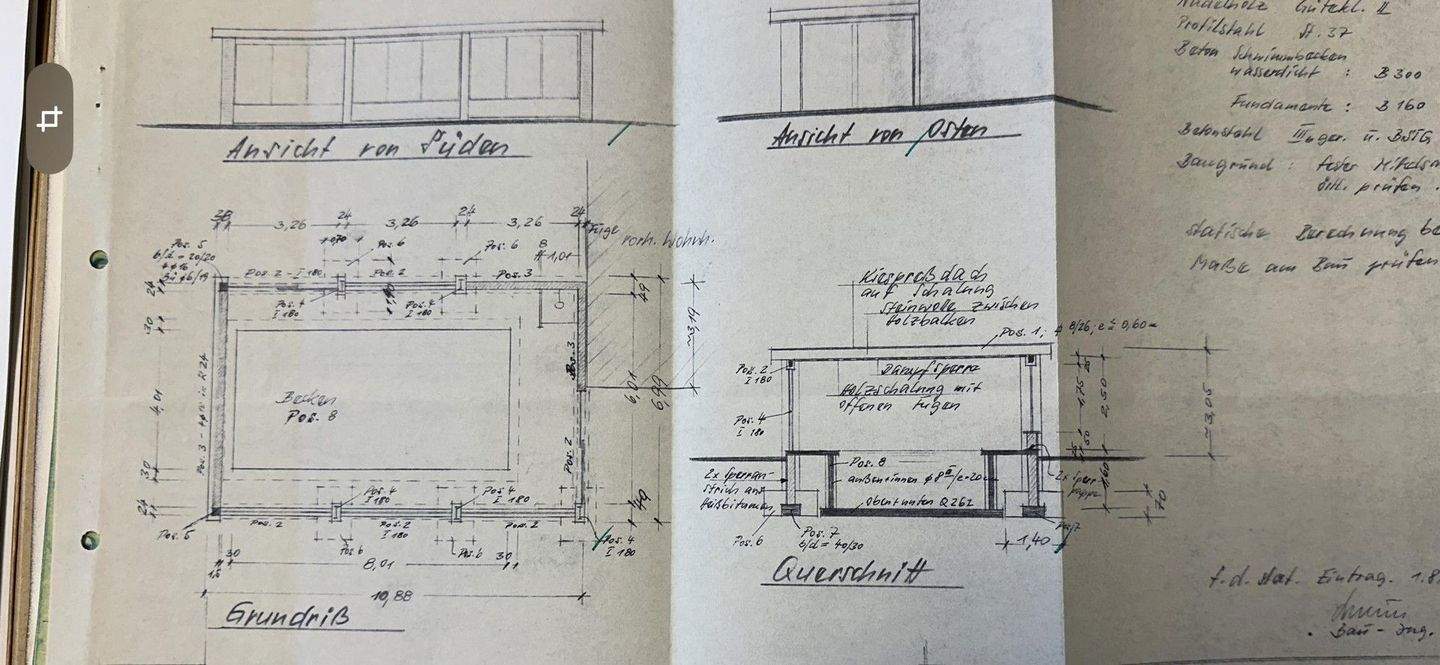 Ansicht von Süden
Ansicht von Osten
Nadelholz Gütekl. II
Profilstahl St. 37
Beton Schwimmbecken
wasserdicht : B 300
Fundamente : B 160
Betonstahl III u. BStG
Baugrund : fester
örtl. prüfen.
statische Berechnung
Maße am Bau prüfen
24
24
24
3,26
3,26
3,26
Fuge
vorh. Wohnh.
Pos. 5
b/d = 20/20
Pos. 6
Pos. 6
Pos. 2 - I 180
Pos. 2
Pos. 3
Pos. 4
I 180
Pos. 4
I 180
24
30
4,01
30
24
49
6,01
6,99
49
~3,19
Pos. 3
Pos. 3
Pos. 2
Becken
Pos. 8
Pos. 4
I 180
Pos. 4
I 180
Pos. 2
Pos. 2
I 180
Pos. 2
Pos. 5
Pos. 4
I 180
Pos. 6
Pos. 6
30
8,01
30
10,88
Grundriß
Kiespreßdach
auf Schalung
Steinwolle zwischen
Holzbalken
Pos. 1, 8/26; e = 0,60
Dampfsperre
Holzschalung mit
offenen Fugen
Pos. 2
I 180
Pos. 4
I 180
1,75
2,50
50
1,60
70
~3,05
2x Sperran-
strich aus
Heißbitumen
Pos. 8
außen+innen
oben+unten Q 262
Pos. 6
Pos. 7
b/d = 40/30
1,40
Querschnitt
f. d. stat. Eintrag.
Bau-Ing.